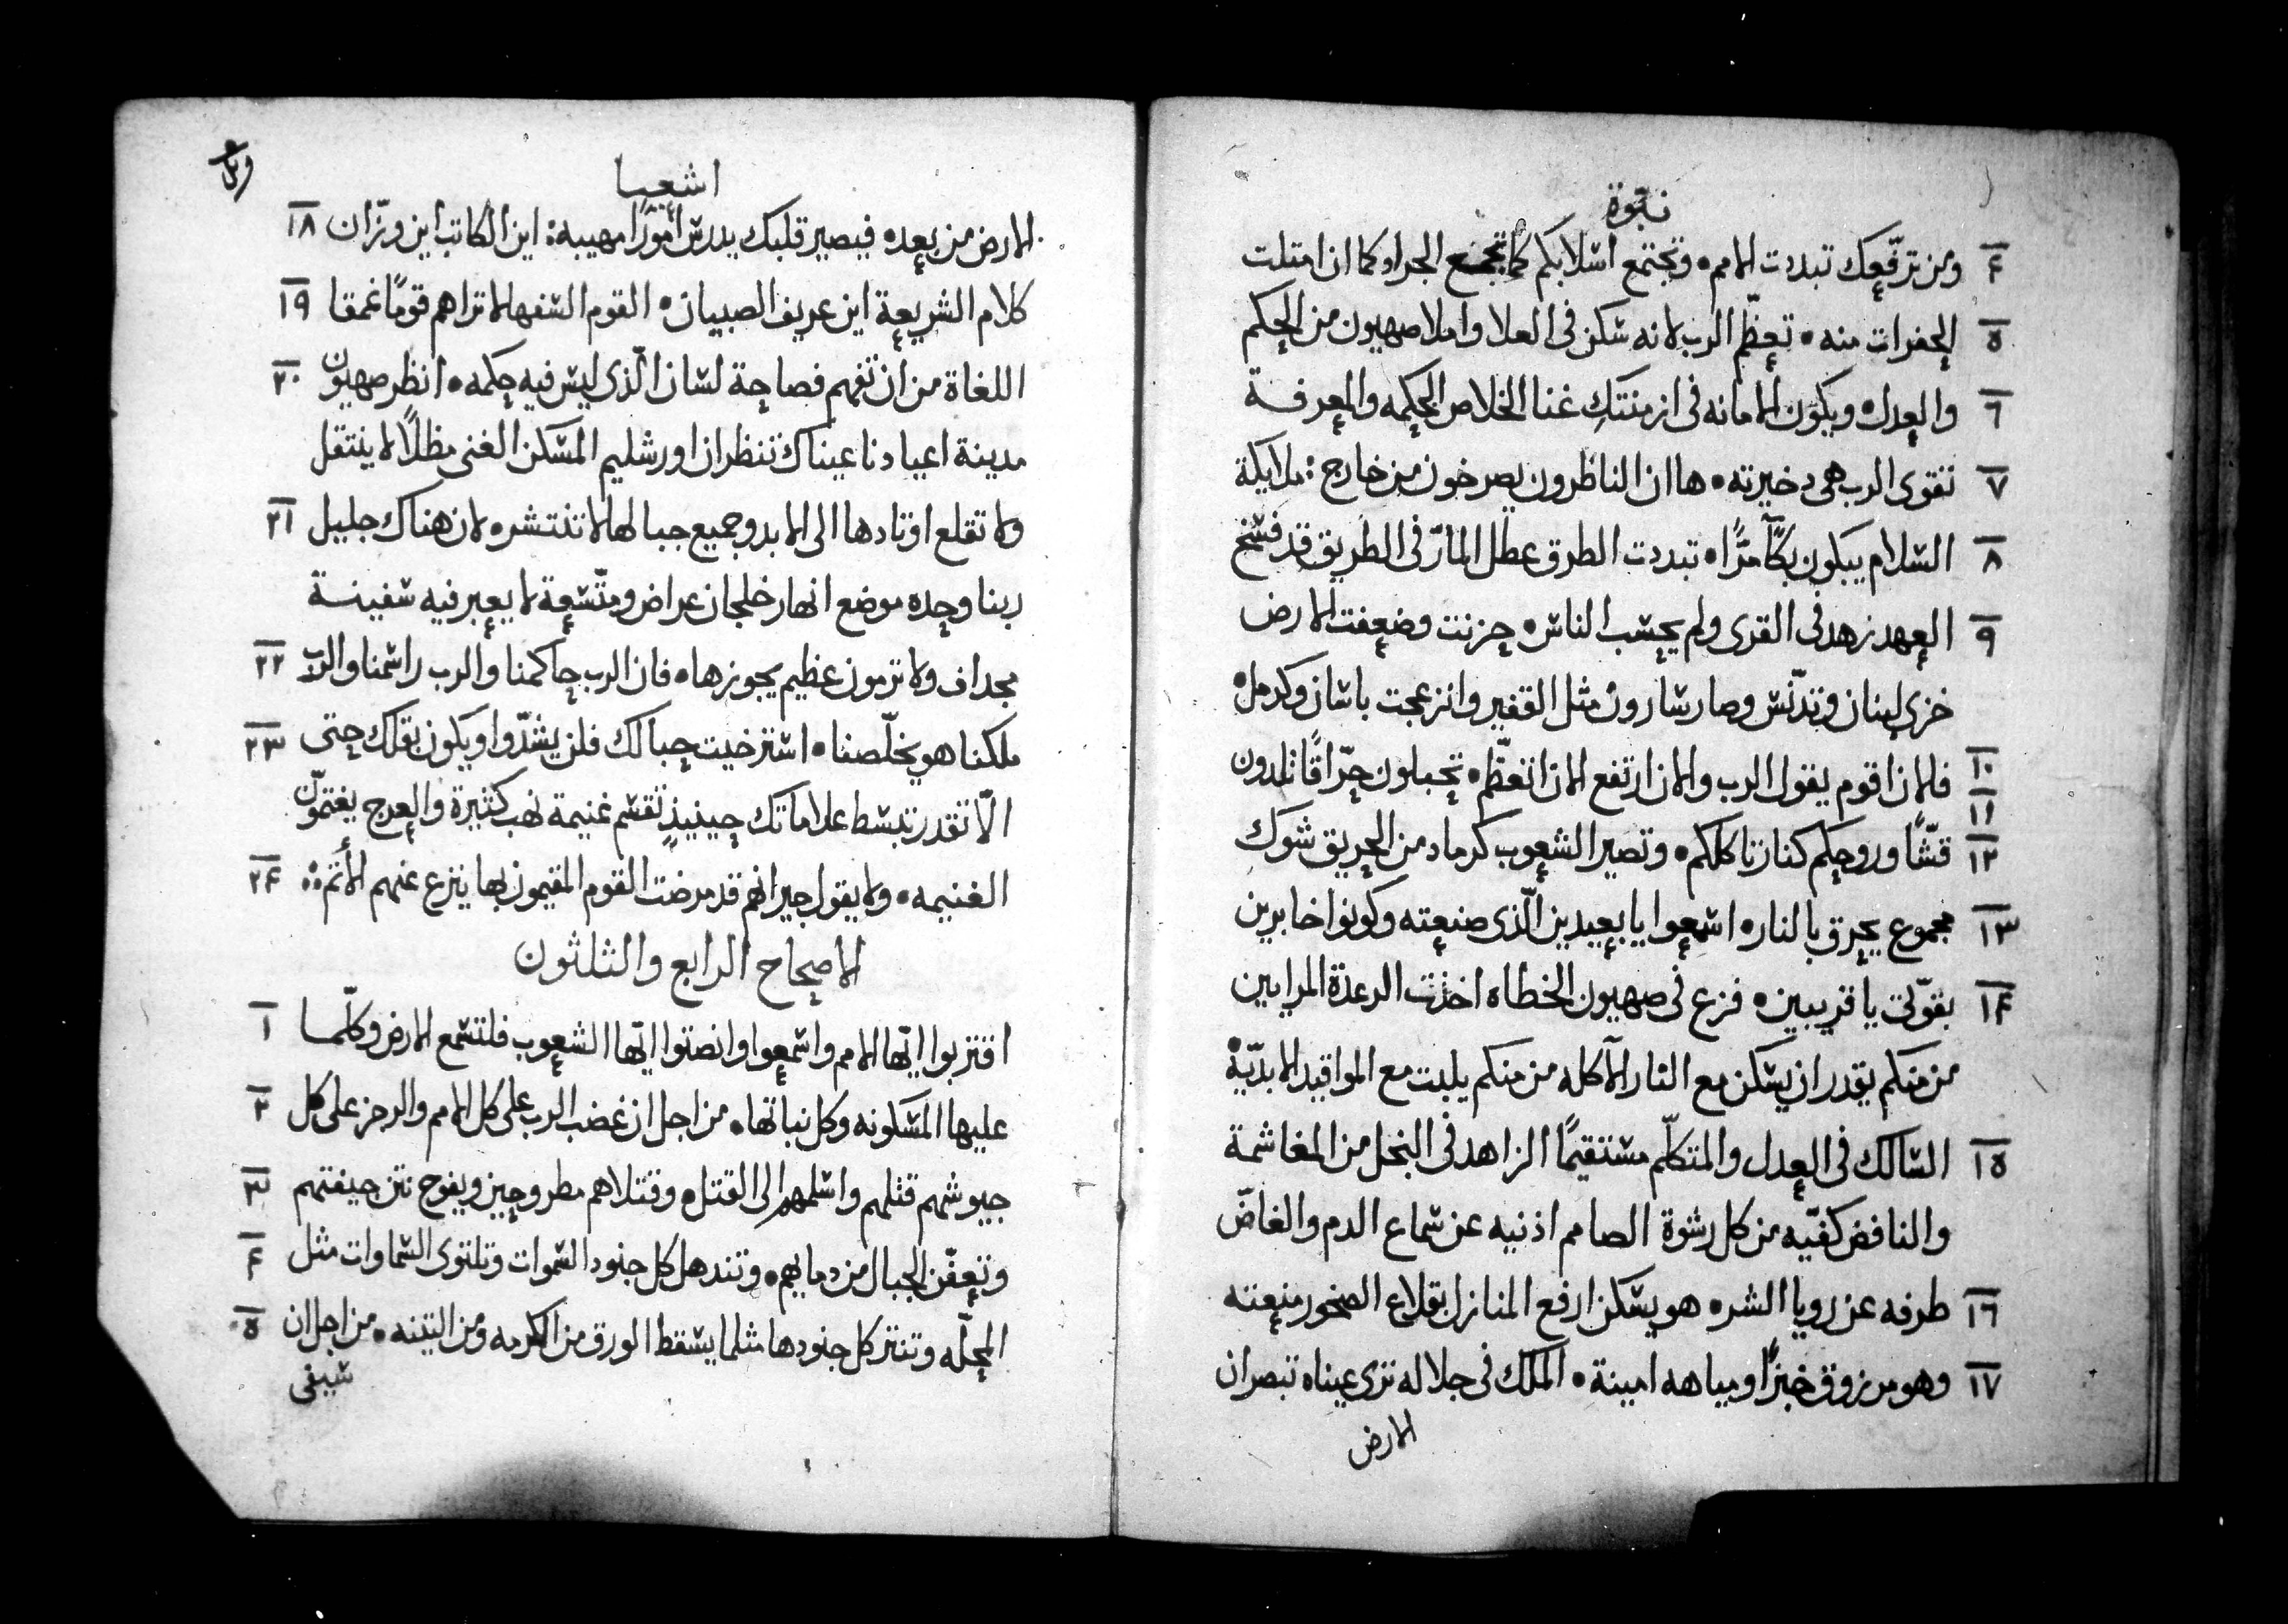 نبوّة
۴ ومن ترفّعك تبددت الامم • وتجتمع اسلابكم كما تجمع الجراد كما ان امتلت
٥ الحفرات منه • تعظّم الرب لانه سكن فى العلا واملا صهيون من الحكم
٦ والعدل • ويكون الامانه فى ازمنتك غنا الخلاص الحكمه والمعرفة
٧ تقوى الرب هى دخيرته • ها ان الناظرون يصرخون من خارج : ملايكة
٨ السلام يبكون بكآ مرًّا • تبددت الطرق عطل المارّ فى الطريق قد فسخ
٩ العهد زهد فى القرى ولم يحسب الناس • حزنت وضعفت الارض
خزى لبنان وتدنّس وصار سارون مثل القفير وانزعجت باسان وكرمل •
١٠ فالان اقوم يقول الرب والان ارتفع الان اتعظّم • تحبلون حرّاقًا تلدون
١١
١٢ قشًّا وروحكم كنار تاكلكم • وتصير الشعوب كرماد من الحريق شوك
١٣ مجموع يحرق بالنار • اسمعوا يا بعيدين الّذى صنعته وكونوا خابرين
١۴ بقوّتى يا قريبين • فزع فى صهيون الخطاه اخذت الرعدة المرايين
من منكم يقدر ان يسكن مع النار الآكله من منكم يلبت مع المواقيد الابديّة •
١٥ السالك فى العدل والمتكلّم مستقيمًا الزاهد فى البخل من المغاشمة
والنافض كفّيه من كل رشوة الصامم اذنيه عن سماع الدم والغاضّ
١٦ طرفه عن رويا الشر • هو يسكن ارفع المنازل بقلاع الصخور منعته
١٧ وهو مرزوق خبزًا ومياهه امينة • الملك فى جلاله ترى عيناه تبصران
الارض
اشعيا
الارض من بعد • فيصير قلبك يدرس امورًا مهيبه : اين الكاتب اين وزّان ١٨
كلام الشريعة اين عريف الصبيان • القوم السفها لا تراهم قومًا غمقا ١٩
اللغاة من ان تفهم فصاحة لسان الّذى ليس فيه حكمه • انظر صهيون ٢٠
مدينة اعيادنا عيناك تنظران اورشليم المسكن الغنى مظلًا لا ينتقل
ولا تقلع اوتادها الى الابد وجميع حبالها لا تنتشر • لان هناك جليل ٢١
ربنا وحده موضع انهار خلجان عراض ومتّسعة لا يعبر فيه سفينة
مجداف ولا ترمون عظيم يجوزها • فان الرب حاكمنا والرب راسمنا والرب ٢٢
ملكنا هو يخلّصنا • استرخيت حبالك فلن يشدّوا ويكون بقلك حتى ٢٣
الّا تقدر تبسط علاماتك حينيذٍ تقسم غنيمة نهب كثيرة والعرج يغتمون
الغنيمه • ولا يقول جيرانهم قد مرضت القوم المقيمون بها ينزع عنهم الأثم : ٢۴
الاصحاح الرابع والثلثون
اقتربوا ايّها الامم واسمعوا وانصتوا ايّها الشعوب فلتسمع الارض وكلّما ١
عليها المسكونه وكل نباتها • من اجل ان غضب الرب على كل الامم والرجز على كل ٢
جيوشهم قتلهم واسلمهم الى القتل • وقتلاهم مطروحين ويفوح نتن جيفتهم ٣
وتعفّن الجبال من دمايهم • وتندهل كل جنود السموات وتلتوى السماوات مثل ۴
المجلّه وتنتر كل جنودها مثلما يسقط الورق من الكرمه ومن التينه • من اجل ان ٥
سيفى